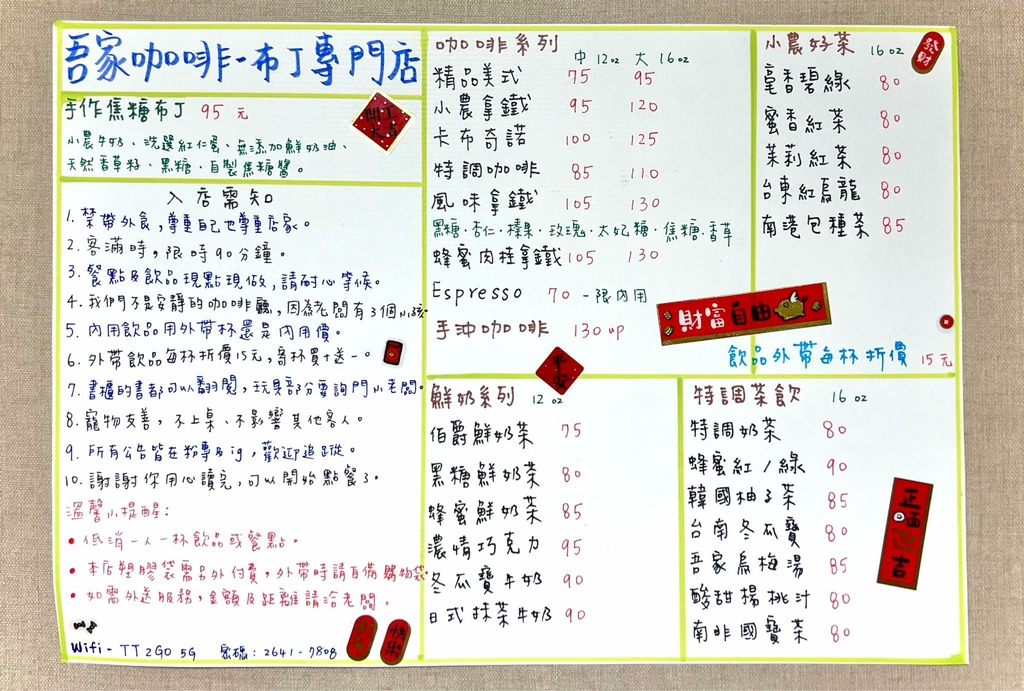 吾家咖啡-布丁專門店
手作焦糖布丁 95 元
小農牛奶、洗選紅仁蛋、無添加鮮奶油、
天然香草籽、黑糖、自製焦糖醬。
開工
大吉
入店需知
1. 禁帶外食,尊重自己也尊重店家。
2. 客滿時,限時90分鐘。
3. 餐點及飲品現點現做,請耐心等候。
4. 我們不是安靜的咖啡廳,因為老闆有3個小孩.
5. 內用飲品用外帶杯還是內用價。
6. 外帶飲品每杯折價15元,寄杯買十送一。
7. 書櫃的書都可以翻閱,玩具部份要詢問小老闆。
8. 寵物友善,不上桌、不影響其他客人。
9. 所有公告皆在粉專及ig,歡迎追蹤。
10. 謝謝你用心讀完,可以開始點餐了。
溫馨小提醒:
• 低消一人一杯飲品或餐點。
• 本店塑膠袋需另外付費,外帶時請自備購物袋.
• 如需外送服務,金額及距離請洽老闆。
Wifi - TT2GO 5G 密碼:2641-7808
咖啡系列 中 12oz 大 16oz
精品美式 75 95
小農拿鐵 95 120
卡布奇諾 100 125
特調咖啡 85 110
風味拿鐵 105 130
黑糖.杏仁.榛果.玫瑰.太妃糖.焦糖.香草
蜂蜜肉桂拿鐵 105 130
Espresso 70 -限內用
手沖咖啡 130 up
平安
小農好茶 16oz
發財
毫香碧綠 80
蜜香紅茶 80
茉莉紅茶 80
台東紅烏龍 80
南港包種茶 85
財富自由
飲品外帶每杯折價 15元
鮮奶系列 12oz
伯爵鮮奶茶 75
黑糖鮮奶茶 80
蜂蜜鮮奶茶 85
濃情巧克力 95
冬瓜寶牛奶 90
日式抹茶牛奶 90
特調茶飲 16oz
特調奶茶 80
蜂蜜紅/綠 90
韓國柚子茶 85
台南冬瓜寶 80
吾家烏梅湯 85
酸甜楊桃汁 80
南非國寶茶 80